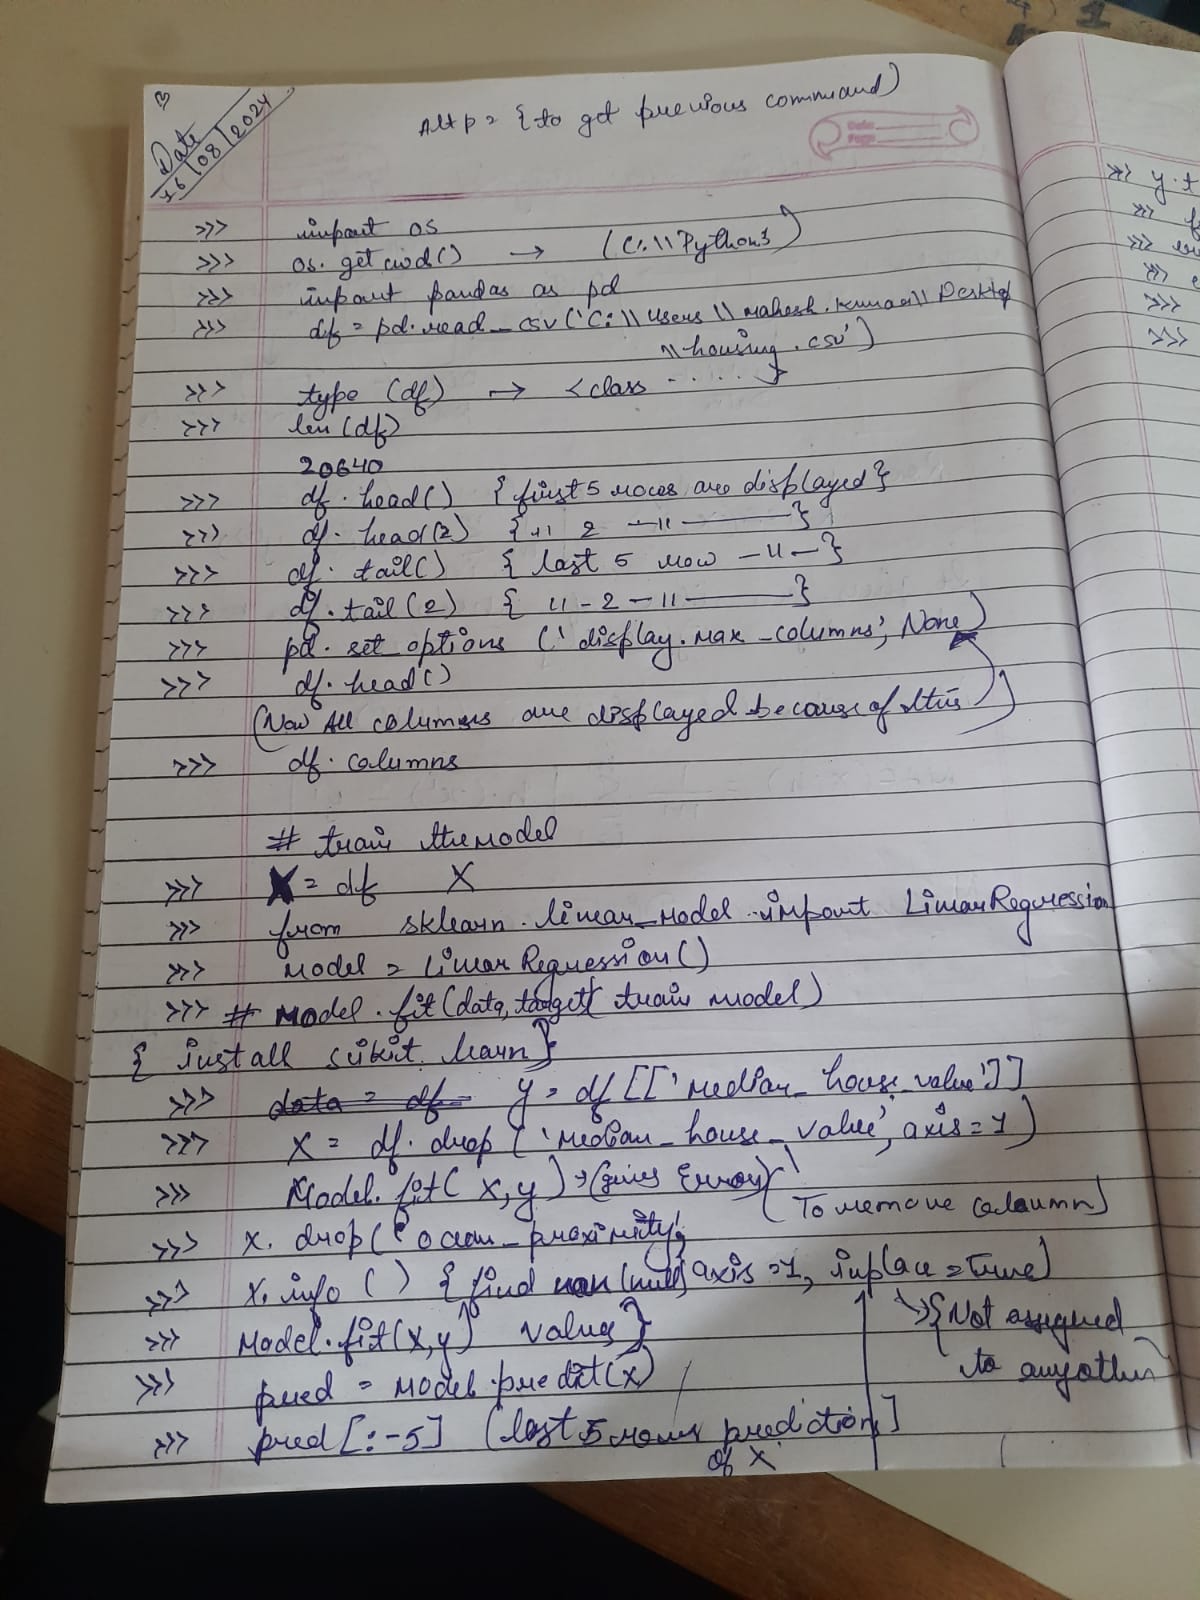 Alt p = {to get previous command)
Date
16/08/2024
Date
Page
>>> import os
>>> os.getcwd() → (C:\\Python3)
>>> import pandas as pd
>>> df = pd.read_csv('C:\\Users\\mahesh.kumar\\Desktop
\\housing.csv')
>>> type (df) → <class ......>
>>> len(df)
20640
>>> df.head() {first 5 rows are displayed}
>>> df.head(2) {" 2 —"———}
>>> df.tail() { last 5 row —"—}
>>> df.tail(2) { " - 2 — " ———}
>>> pd.set_options ('display.max_columns', None)
>>> df.head()
(Now All columns are displayed because of this)
>>> df.columns
# train the model
>>> X = df X
>>> from sklearn.linear_model import LinearRegression
>>> model = LinearRegression()
>>> # Model.fit(data, target) train model)
{ install scikit learn}
>>> data = df y = df[['median_house_value']]
>>> X = df.drop ('median_house_value', axis=1)
>>> Model.fit(X,y) → (gives Error)
(To remove column)
>>> X.drop('ocean_proximity',
axis=1, inplace=True)
>>> X.info() {find nan (null)
values}
>>> Model.fit(X,y)
→{Not assigned
to any other
>>> pred = model.predict(x)
>>> pred [:-5] (last 5 rows prediction)
of X
>>> y.t
>>>
>>>
>>>
>>>
>>>